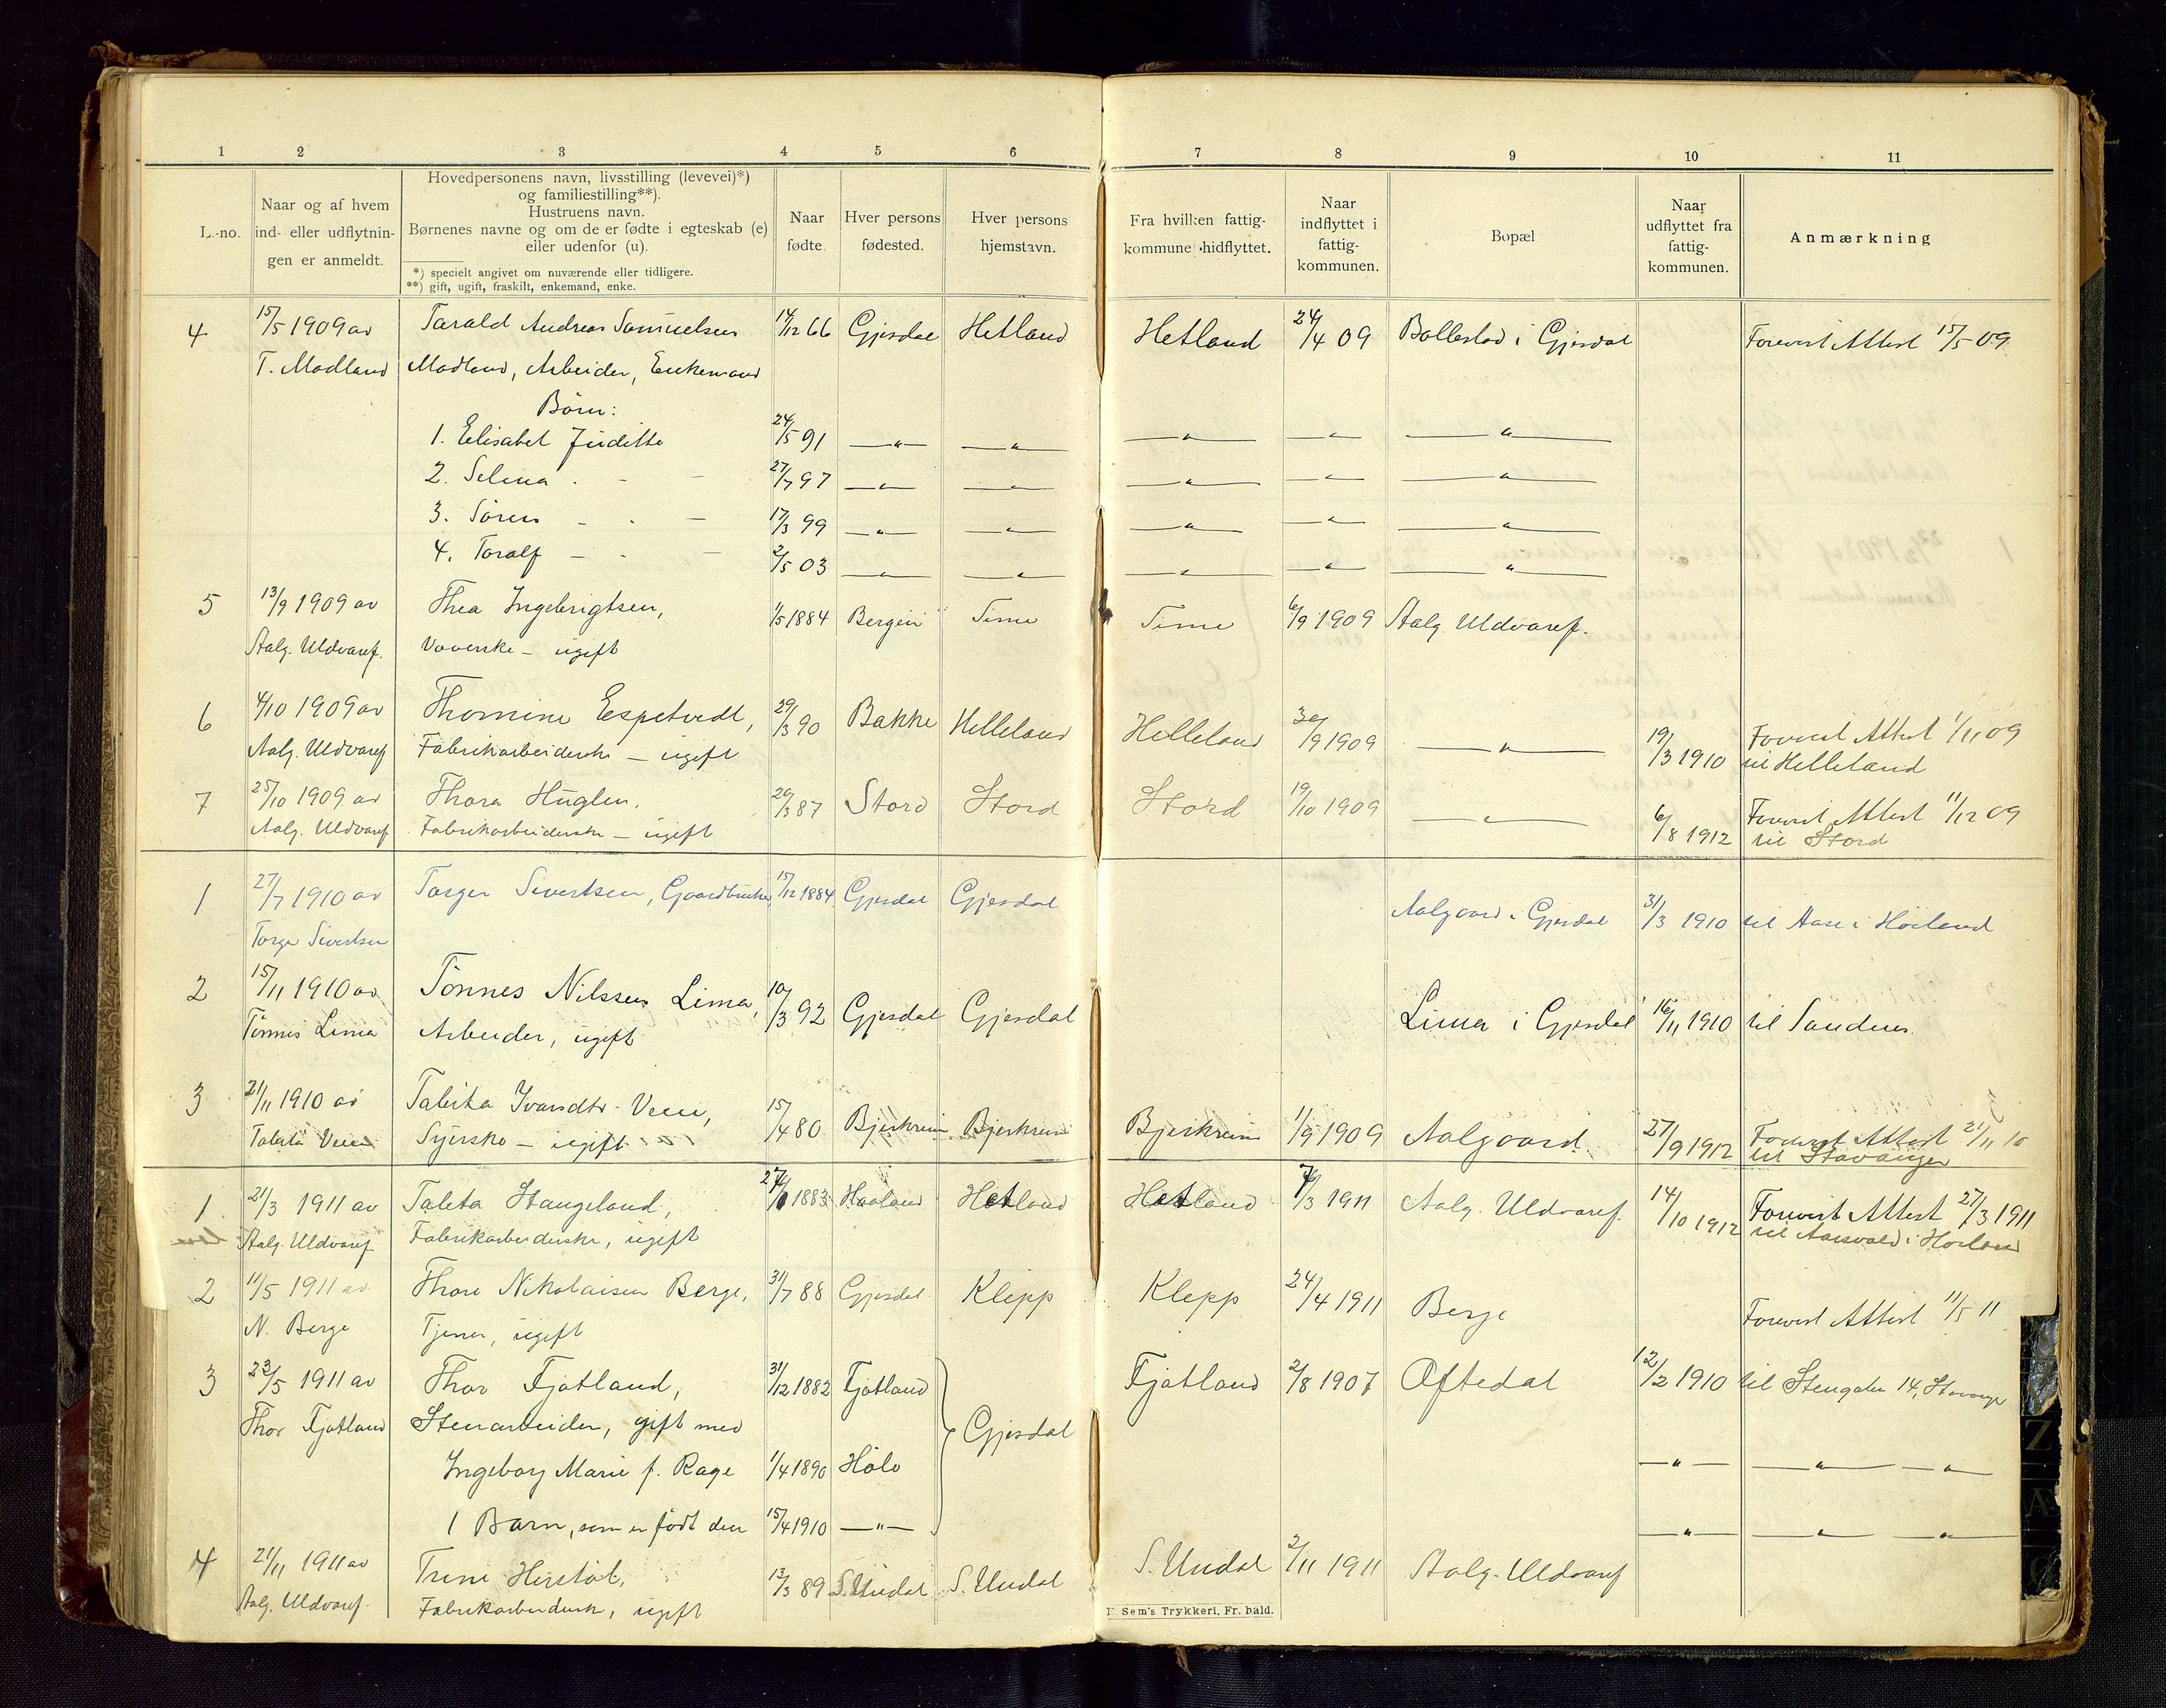 1 2 3 4 5 6 7 8 9 10 11
L.-no.
Naar og af hvem
ind- eller udflytnin-
gen er anmeldt.
Hovedpersonens navn, livsstilling (levevei)*)
og familiestilling**).
Hustruens navn.
Børnenes navne og om de er fødte i egteskab (e)
eller udenfor (u).
*) specielt angivet om nuværende eller tidligere.
**) gift, ugift, fraskilt, enkemand, enke.
Naar
fødte.
Hver persons
fødested.
Hver persons
hjemstavn.
Fra hvilken fattig-
kommune hidflyttet.
Naar
indflyttet i
fattig-
kommunen.
Bopæl
Naar
udflyttet fra
fattig-
kommunen.
Anmærkning
4 15/5 1909 av Tarald Andreas Samuelsen 14/12 66 Gjesdal Hetland Hetland 24/4 09 Bollestad i Gjesdal Forevist Attest 15/5 09
T. Madland Madland, Arbeider, Enkemand
Børn:
1. Elisabet Juditte 24/5 91 —"— —"— —"— —"— —"—
2. Selma - - 27/7 97 —"— —"— —"— —"— —"—
3. Søren - - - 17/3 99 —"— —"— —"— —"— —"—
4. Toralf - - - 2/5 03 —"— —"— —"— —"— —"—
5 13/9 1909 av Thea Ingebrigtsen, 1/5 1884 Bergen Time Time 6/9 1909 Aalg. Uldvaref.
Aalg. Uldvaref. Væverske - ugift
6 4/10 1909 av Thomine Espetvedt, 29/3 90 Bakke Helleland Helleland 30/9 1909 —"— 19/3 1910 Forevist Attest 1/11 09
Aalg. Uldvaref Fabrikarbeiderske - ugift til Helleland
7 25/10 1909 av Thora Huglen, 29/3 87 Stord Stord Stord 19/10 1909 —"— 6/8 1912 Forevist Attest 11/12 09
Aalg. Uldvaref Fabrikarbeiderske - ugift til Stord
1 27/7 1910 av Torger Sivertsen, Gaardbruker 15/12 1884 Gjesdal Gjesdal Aalgaard i Gjesdal 31/3 1910 til Aase i Høiland
Torger Sivertsen
2 15/11 1910 av Tønnes Nilssen Lima, 10/3 92 Gjesdal Gjesdal Lima i Gjesdal 16/11 1910 til Sandnes.
Tønnes Lima Arbeider, ugift
3 21/11 1910 av Tabita Ivarsdtr. Veen, 15/4 80 Bjerkreim Bjerkreim Bjerkreim 1/9 1909 Aalgaard 27/9 1912 Forevist Attest 21/11 10
Tabita Veen Syerske - ugift til Stavanger
1 21/3 1911 av Taleta Stangeland, 1883 Haaland Hetland Hetland 7/3 1911 Aalg. Uldvaref. 14/10 1912 Forevist Attest 27/3 1911
Aalg. Uldvaref Fabrikarbeiderske, ugift til i Høiland
2 11/5 1911 av Thore Nikolaisen Berge, 31/7 88 Gjesdal Klepp Klepp 24/4 1911 Berge Forevist Attest 11/5 11
N. Berge Tjener, ugift
3 23/5 1911 av Thor Fjotland, 31/12 1882 Fjotland Fjotland 2/8 1907 Oftedal 12/2 1910 til Stengaten 14, Stavanger
Thor Fjotland Stenarbeider, gift med Gjesdal
Ingeborg Marie f. Rage 1/4 1890 Høle —"— —"— —"—
1 Barn, som er født den 15/4 1910 —"— —"— —"— —"—
4 21/11 1911 av Trine Hirstøl, 13/3 89 S. Undal S. Undal S. Undal 2/11 1911 Aalg. Uldvaref
Aalg. Uldvaref. Fabrikarbeiderske, ugift
Sem's Trykkeri, Fr. hald.